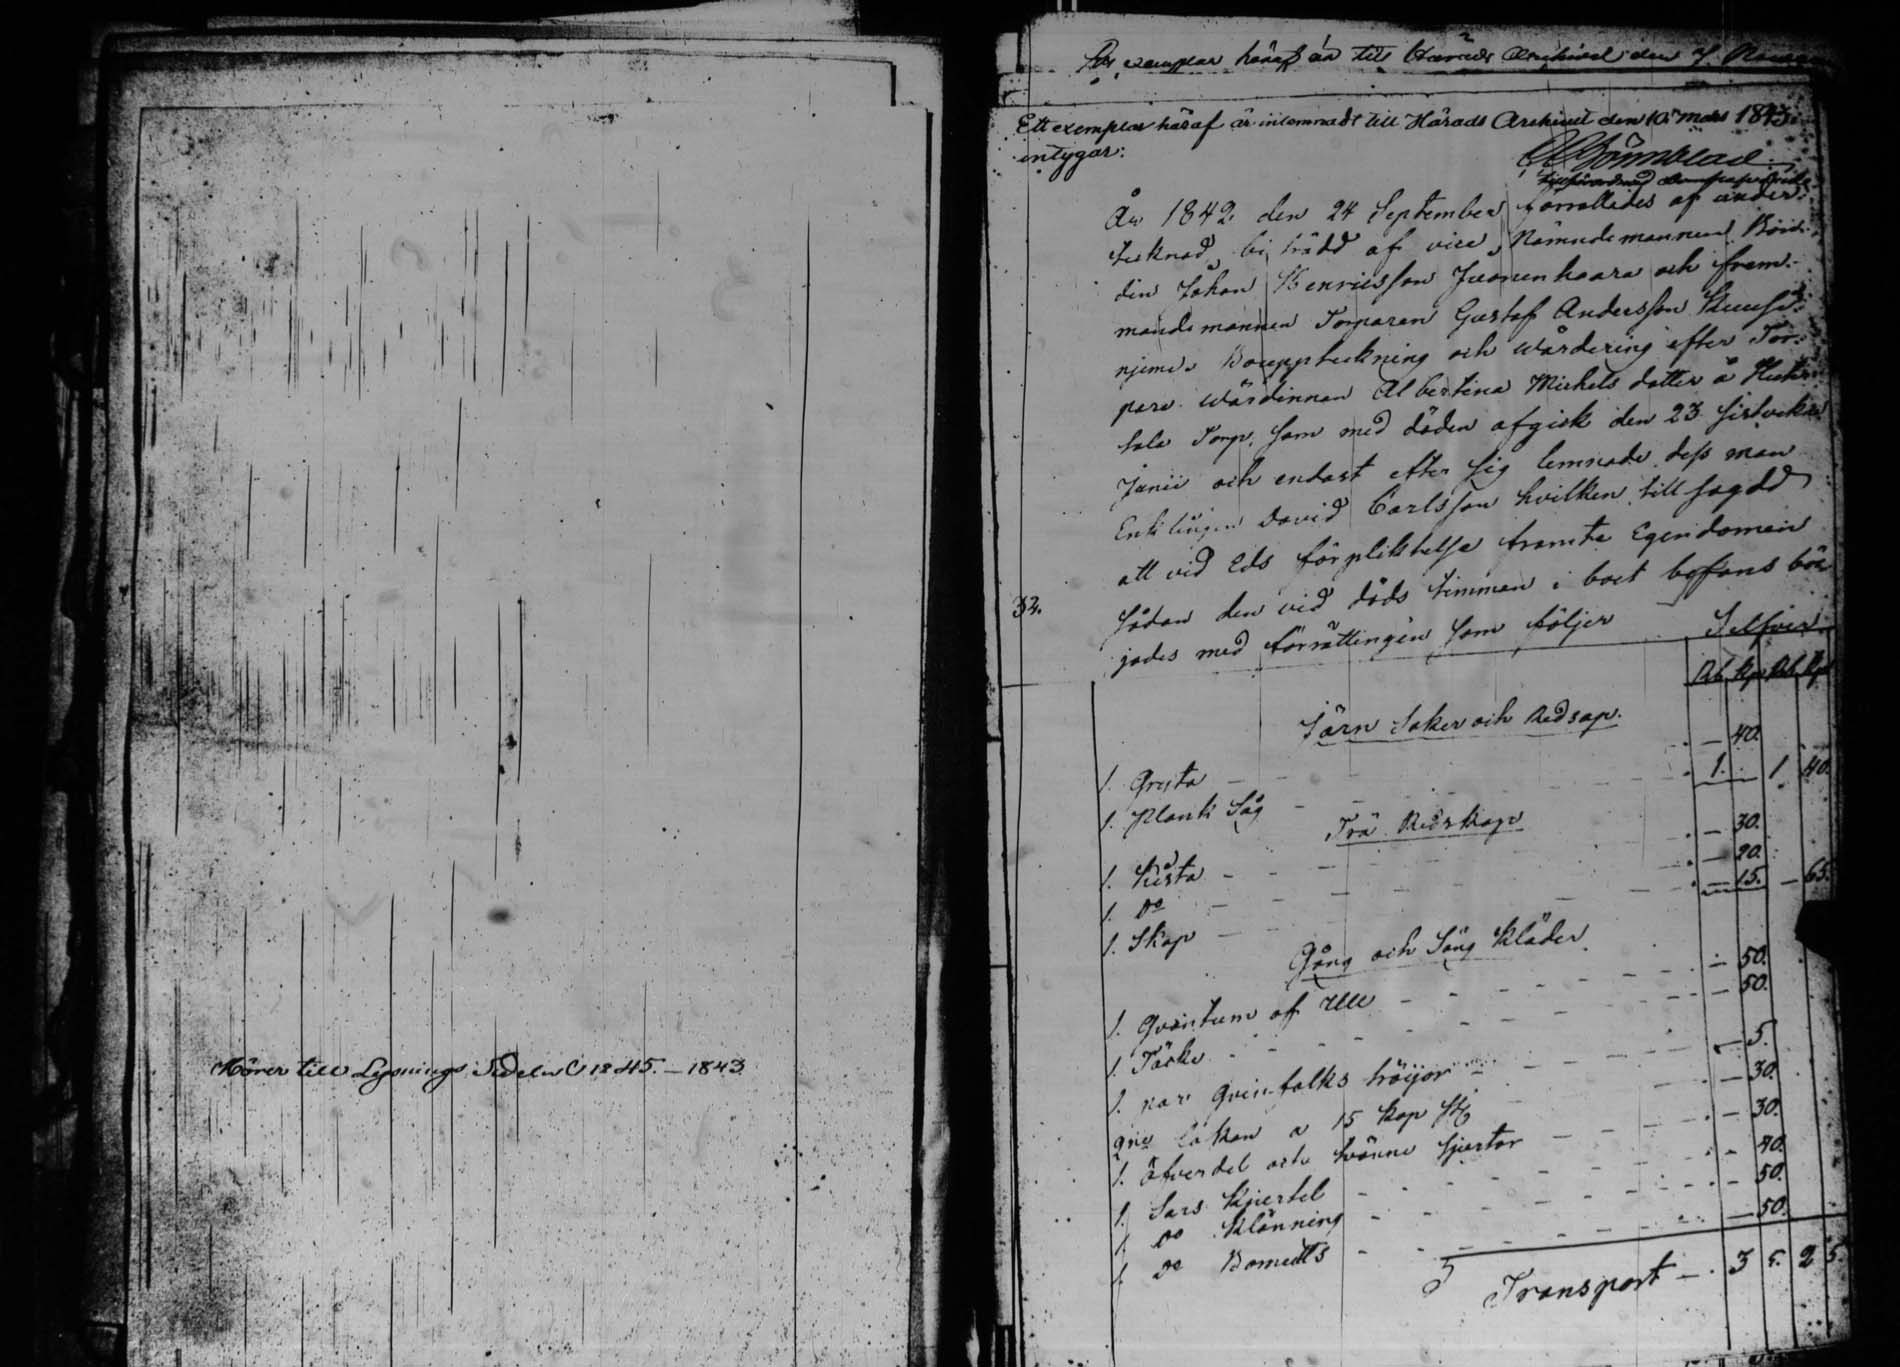 Hörer till Lysnings Sedeln C 1245. – 1843
exemplar häraf är till Härads Archivet den
Ett exemplar häraf är inlemnadt till Härads Archivet den 10 Mars 1843.
intygar:
År 1842 den 24 September förrättedes af under-
teknad, biträdd af vice Nämndemannen Bön-
den Johan Henricsson Juonenhaara och frem-
mande mannen Torparen Gustaf Andersson
Bouppteckning och wärdering efter Tor-
pare wärdinnan Albertina Mickels dotter å
tala Torp, som med döden afgick den 23 sistvekne
Junii och endast efter sig lemnade dess man
Enklingen David Carlsson hvilken tillsagdd
att vid Eds förpliktelse framte Egendomen
32.
sådan den vid döds timman i boet befans bör-
jades med förrättingen som följer
Silfver
Rb. Kp. Rb. Kp.
Järn Saker och Redsap.
1. Gryta – 40.
1. Plank Såg 1. – 1 40.
Trä Redskap
1. Kista – 30.
1. Do – 20.
1. Skap – 15. – 65.
Gång och Säng Kläder
1. Qvintum af Ull – 50.
1. Täcke – 50.
1. par Qvinfolks tröijor – 5.
lakan a 15 kop – 30.
1. öfverdel och tvänne sjortor – 30.
1. Sars Kjortel – 40.
1. Do Klänning – 50.
1. Do – 50.
Transport – 3 5. 2 5.